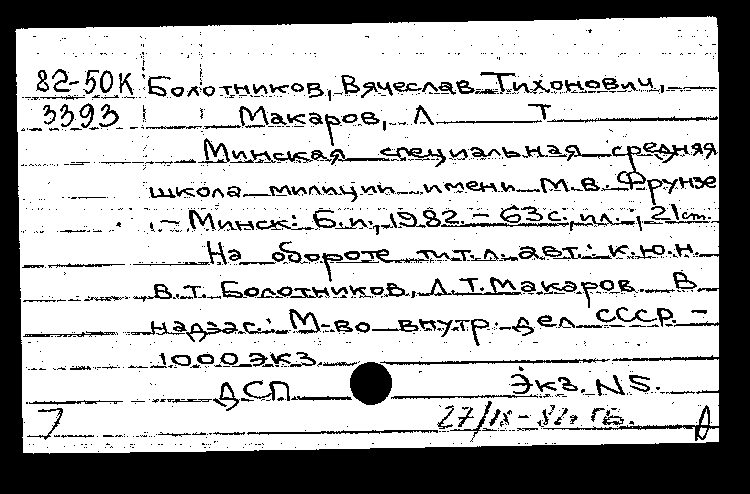 82-50К Болотников, Вячеслав Тихонович,
3393 Макаров, Л Т
Минская специальная средняя
школа милиции имени М.В. Фрунзе
.- Минск: Б.и., 1982. - 63с.; ил.-; 21 ст.
На обороте тит.л. авт.: к.ю.н.
В.Т. Болотников, Л.Т. Макаров. В
надзаг.: М-во внутр. дел СССР. -
1000 экз
ДСП Экз. N 5.
27/18-82г ГБ.